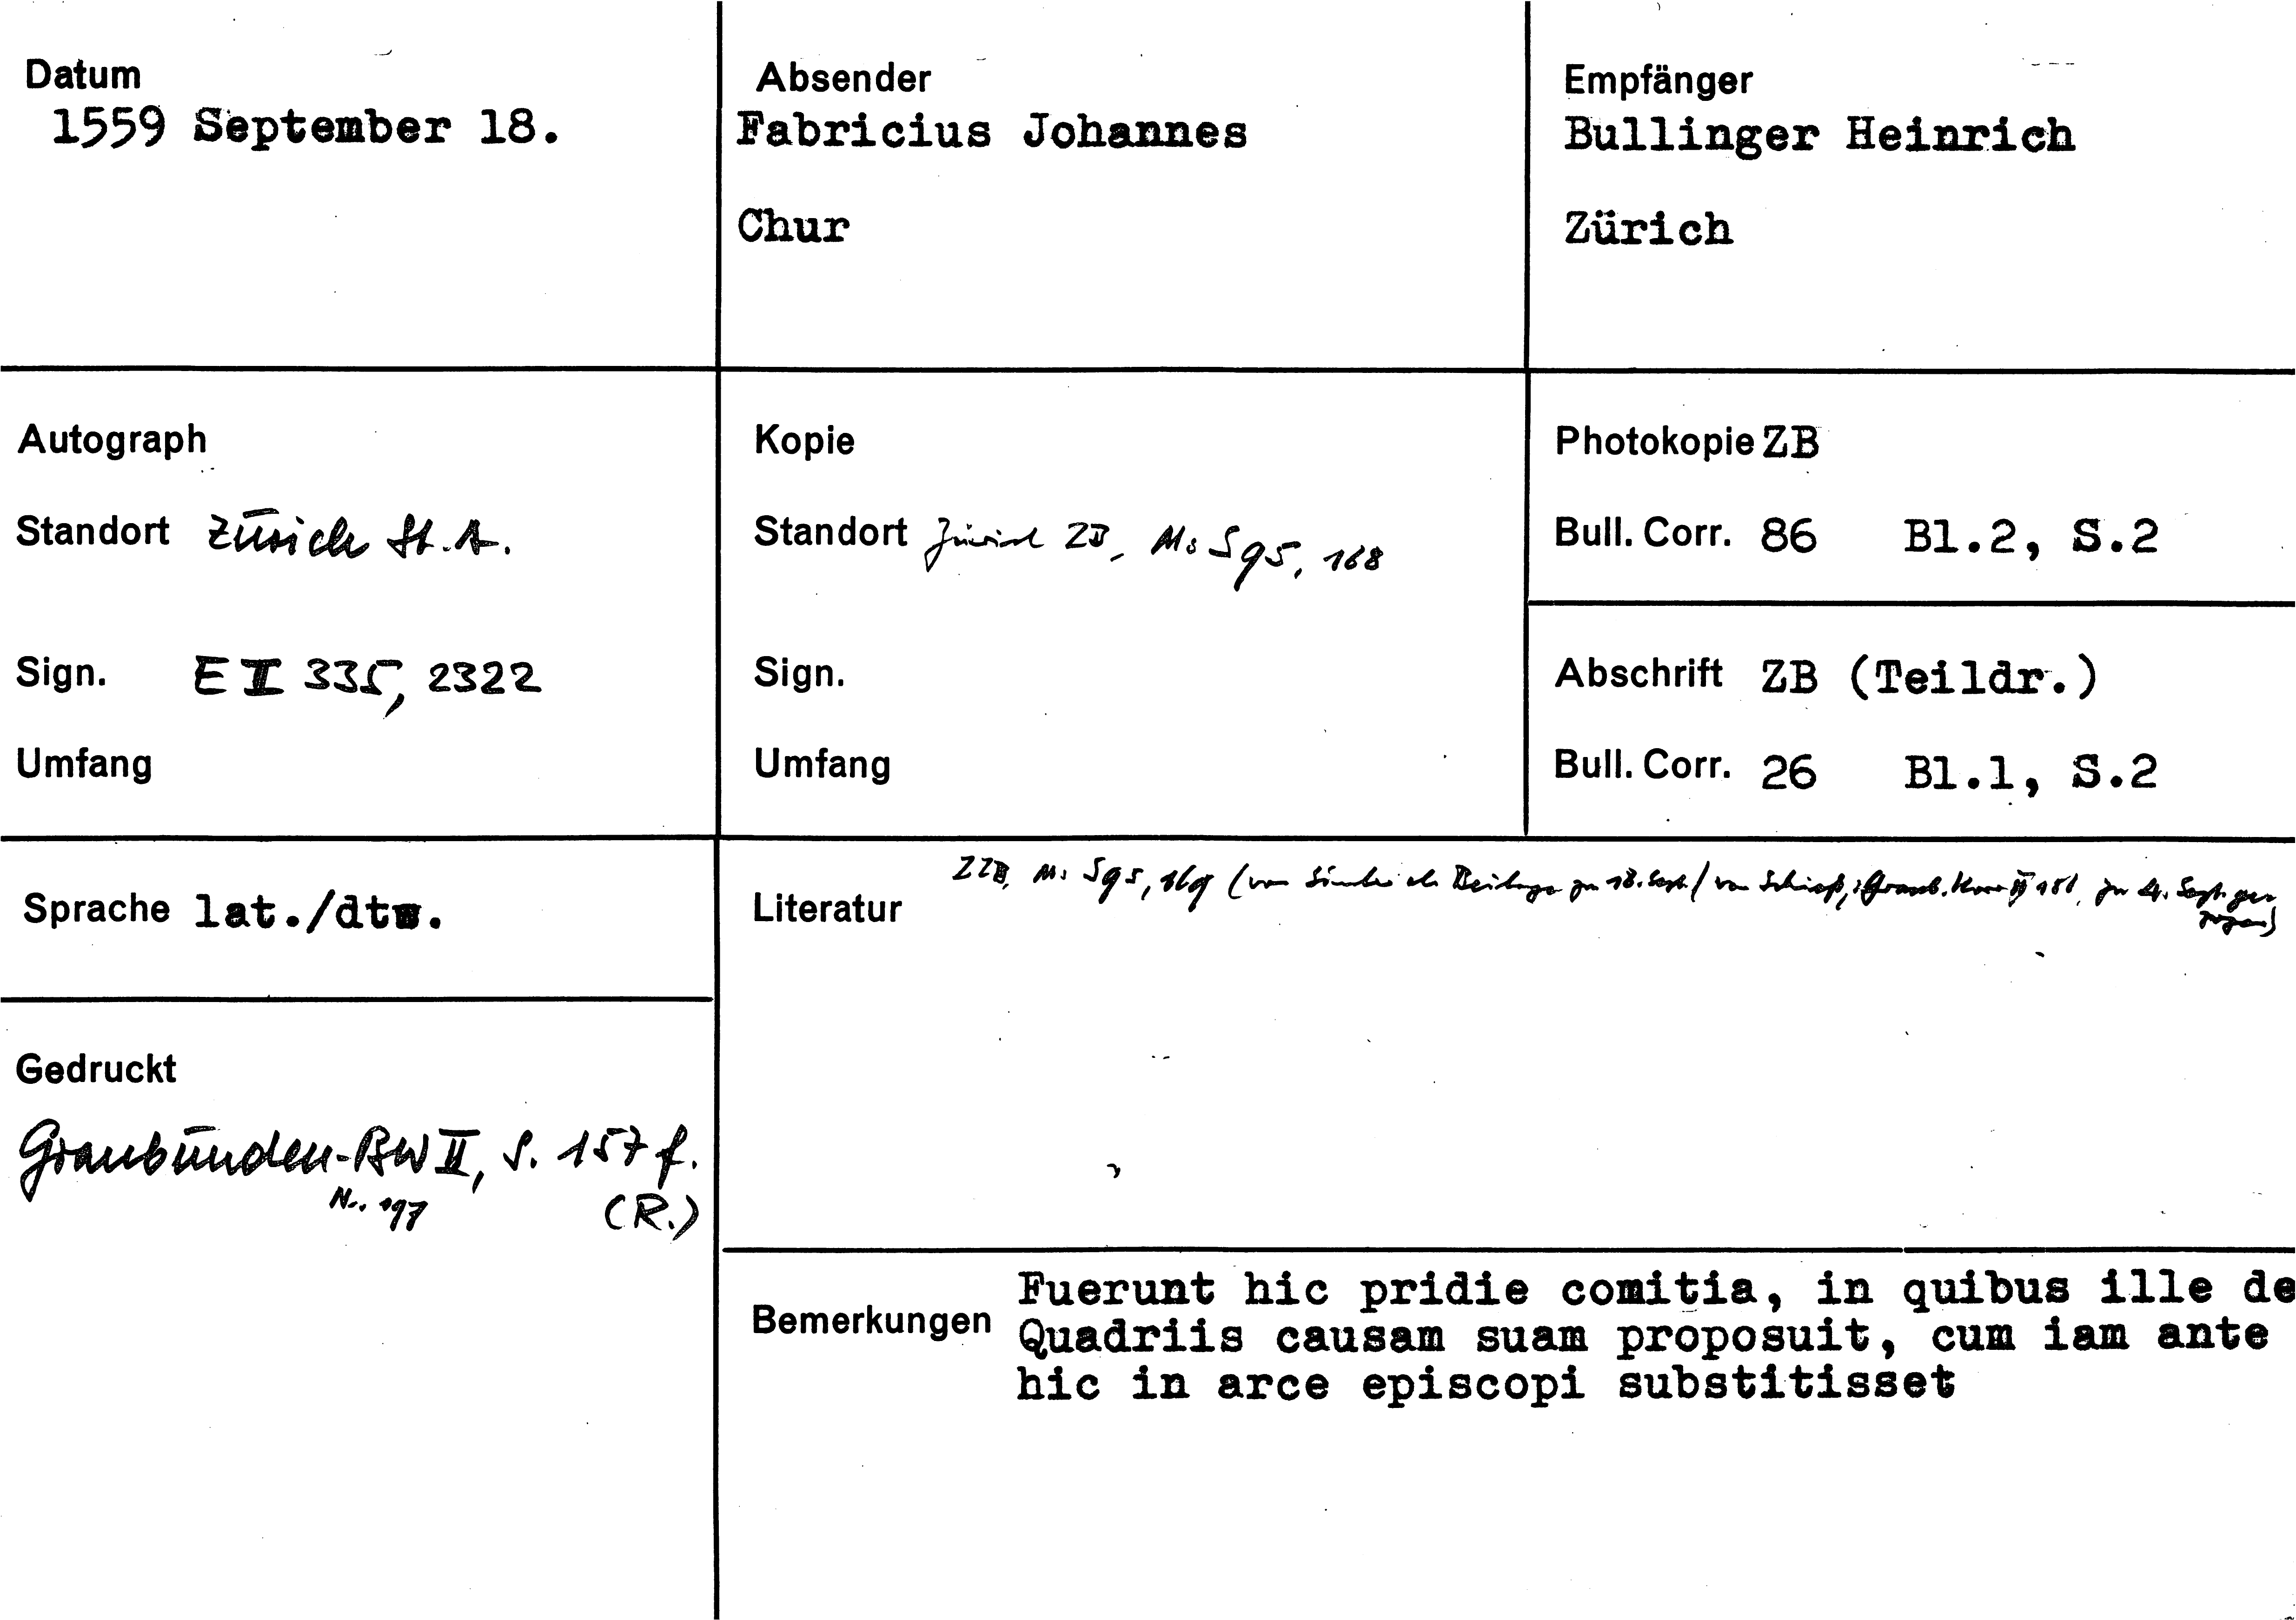 Datum
1559 September 18.
Absender
Fabricius Johannes
Chur
Empfänger
Bullinger Heinrich
Zürich
Autograph
Standort Zürich St.A.
Sign. E II 335, 2322
Umfang
Kopie
Standort Zürich ZB, Ms S 95, 168
Sign.
Umfang
Photokopie ZB
Bull. Corr. 86 Bl.2, S.2
Abschrift ZB (Teildr.)
Bull. Corr. 26 Bl.1, S.2
Sprache lat./dts.
Literatur
ZZB, Ms S 95, 169 (von Simler als Beilage zu 18. Sept. / von Schieß, Graub. Korr II 181, zu 4. Sept. ge-
zogen)
Gedruckt
Graubünden-BW II, S. 157 f.
Nr. 197 (R.)
Bemerkungen
Fuerunt hic pridie comitia, in quibus ille de
Quadriis causam suam proposuit, cum iam ante
hic in arce episcopi substitisset